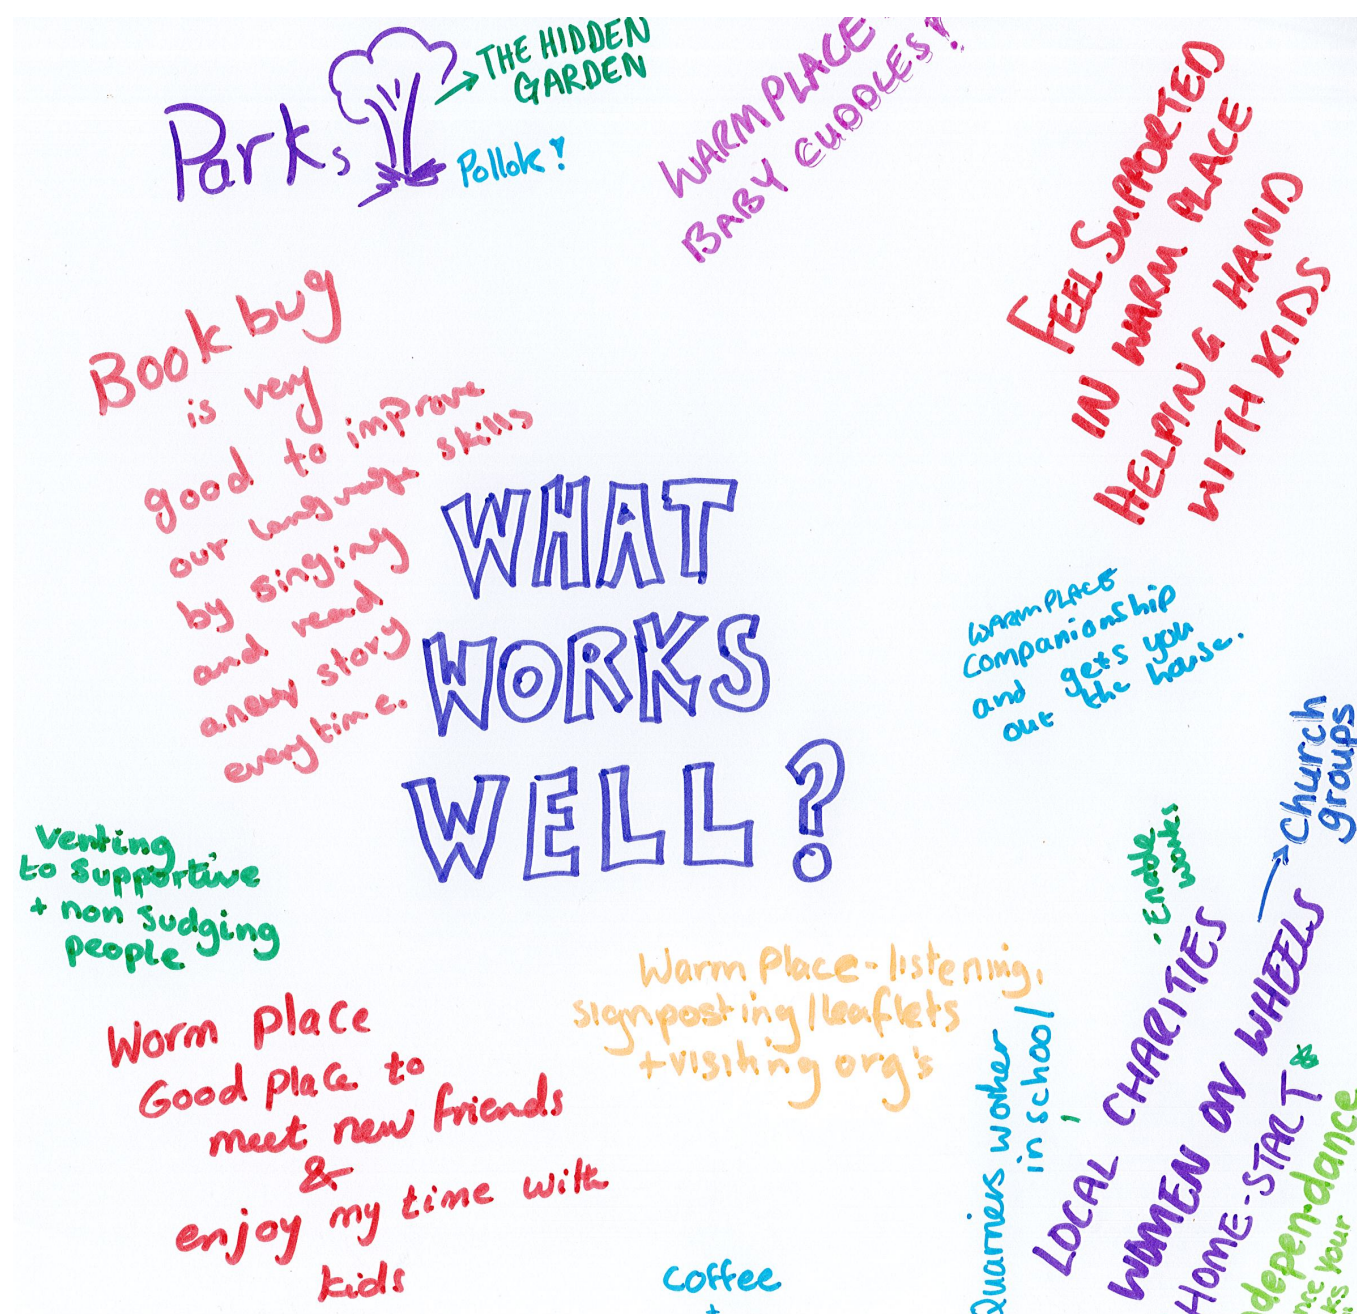 Parks
THE HIDDEN
GARDEN
Pollok!
WARM PLACE
BABY CUDDLES!
FEEL SUPPORTED
IN WARM PLACE
HELPING HAND
WITH KIDS
Bookbug
is very
good to improve
our language skills
by singing
and read
a new story
every time.
WHAT
WORKS
WELL?
WARM PLACE
Companionship
and gets you
out the house.
Church
groups
Venting
to supportive
+ non judging
people
• Enable
works
Warm Place - listening,
signposting/leaflets
+ visiting org's
Worm place
Good place to
meet new friends
&
enjoy my time with
kids
Quarriers worker
in school
LOCAL CHARITIES
WOMEN ON WHEELS
HOME-START *
depen-dance
your
coffee
+